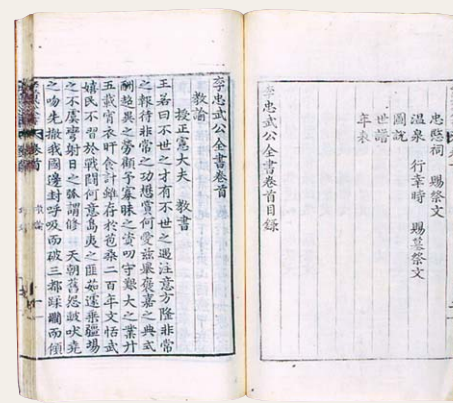 忠愍祠 賜祭文
溫泉 行幸時 賜墓祭文
圖說
世譜
年表
李忠武公全書卷首目錄
李忠武公全書卷首
教諭
授正憲大夫 教書
王若曰不世之才有不世之遇注意方隆非常
之報待非常之功懋賞何愛茲畢褒嘉之典式
酬越異之勞顧予寡昧之資叨守艱大之業廾
五載宵衣旰食計雖存於苞桑二百年文恬武
嬉民不習於戰鬪何意島夷之匪茹遽乘疆場
之不虞彎射日之弧謂修 天朝舊怨皷吠堯
之吻先撤我國邊封呼吸而破三都蹂躪而傾